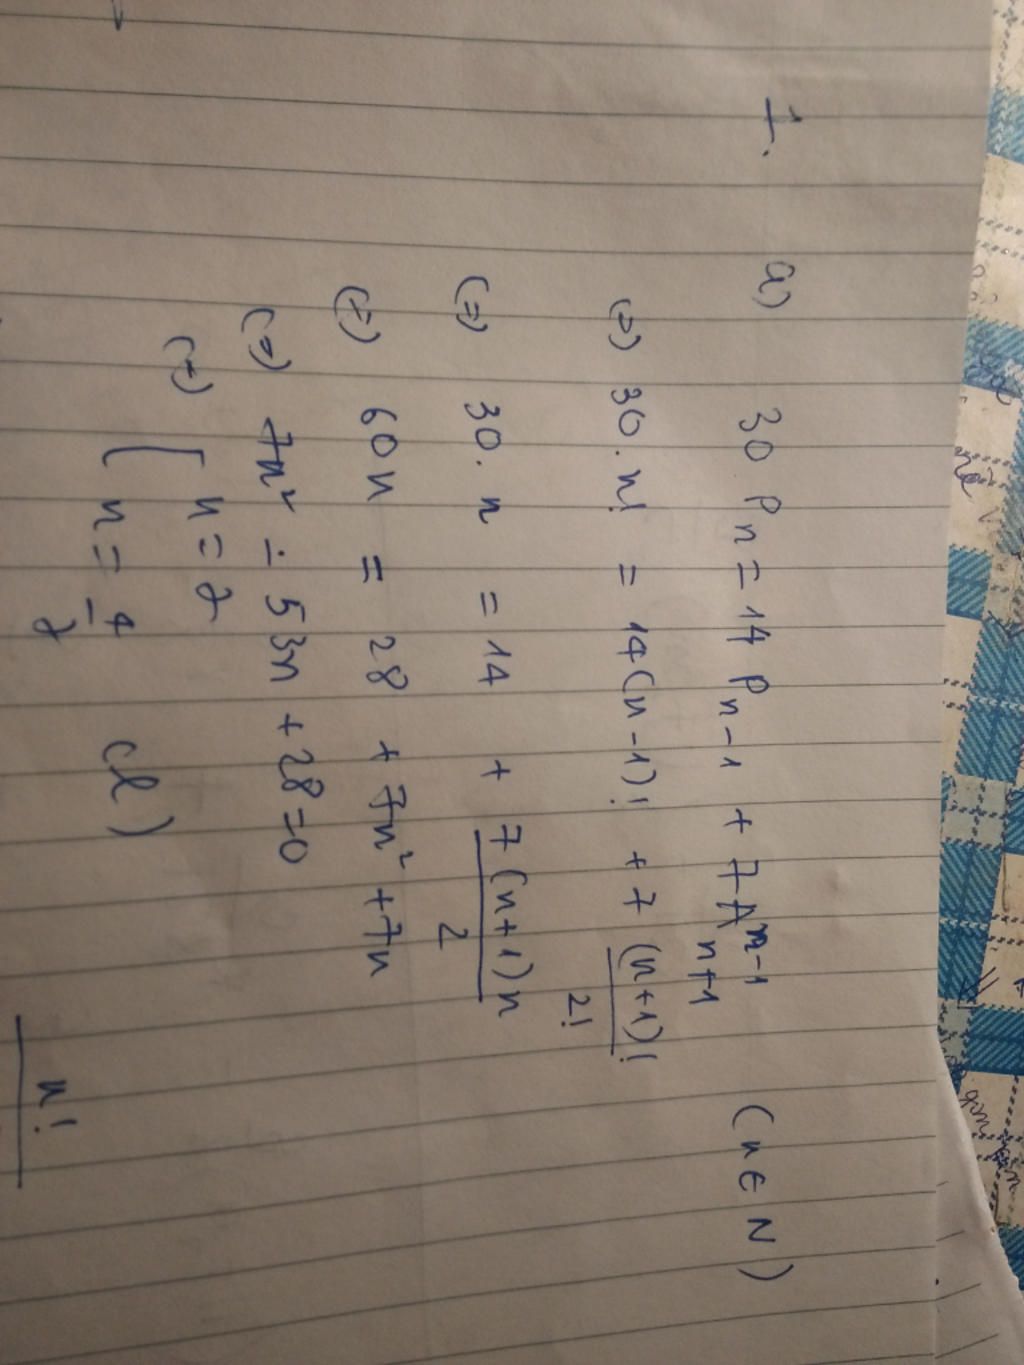 1. a) 30 Pn = 14 Pn-1 + 7 A^{n-1}_{n+1} (n ∈ N)
(=) 30. n! = 14(n-1)! + 7 (n+1)!/2!
(=) 30. n = 14 + 7(n+1)n/2
(=) 60n = 28 + 7n² + 7n
(=) 7n² - 53n + 28 = 0
(=) [ n = 7
n = 4/7 (l)
n!